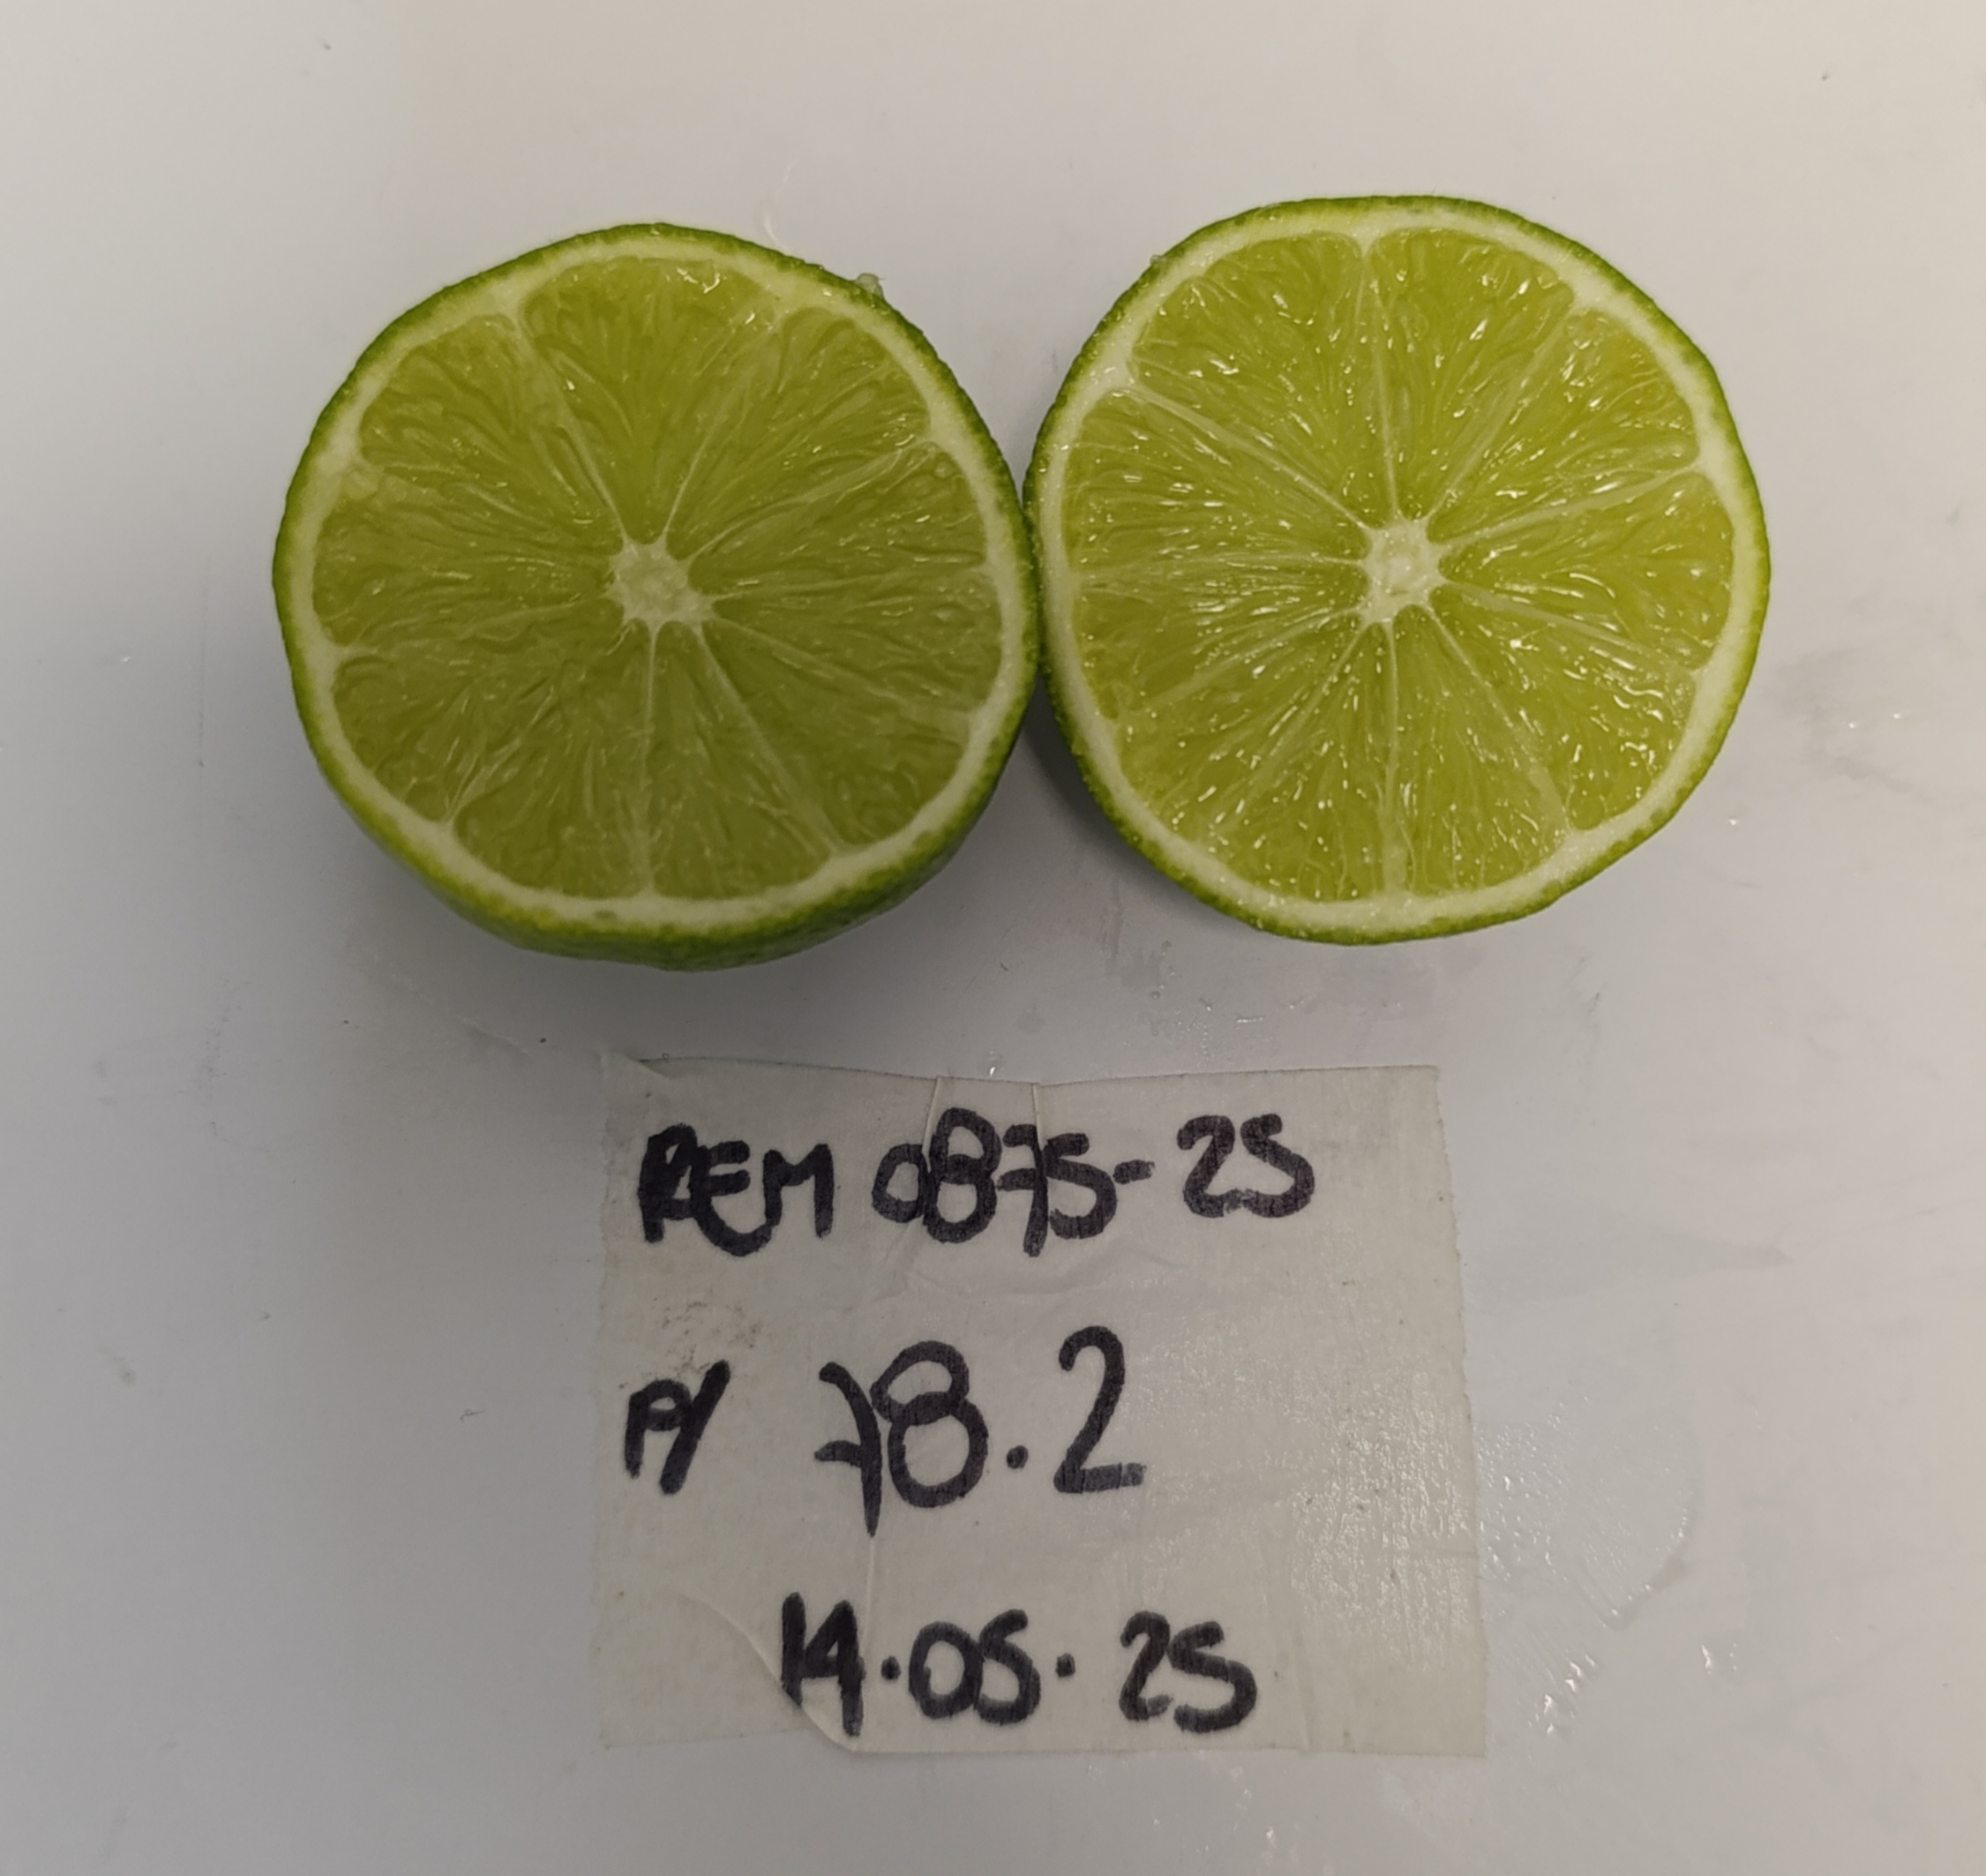 REM 0875-25
P/ 78.2
14.05.25